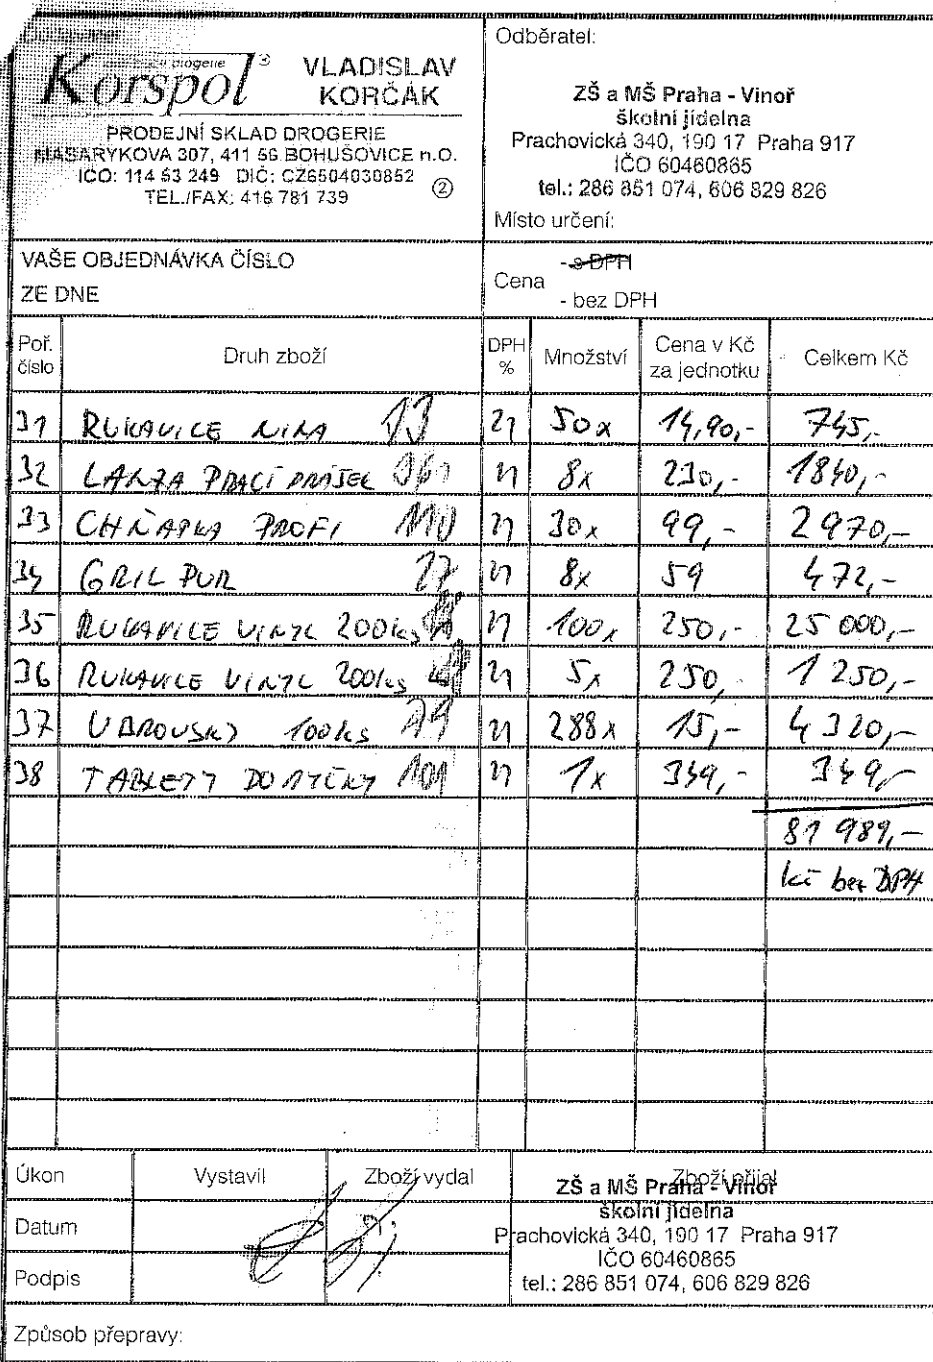 Korspol ® VLADISLAV KORČÁK
PRODEJNÍ SKLAD DROGERIE
MASARYKOVA 307, 411 56 BOHUŠOVICE n.O.
IČO: 114 53 249 DIČ: CZ6504030852
TEL./FAX: 416 781 739 ②
Odběratel:
ZŠ a MŠ Praha - Vinoř
školní jídelna
Prachovická 340, 190 17 Praha 917
IČO 60460865
tel.: 286 851 074, 606 829 826
Místo určení:
VAŠE OBJEDNÁVKA ČÍSLO
ZE DNE
Cena - s DPH
- bez DPH
Poř. číslo Druh zboží DPH % Množství Cena v Kč za jednotku Celkem Kč
31 RUKAVICE NINA 13 21 50x 14,90,- 745,-
32 LANZA PRACÍ PRÁŠEK 21 8x 230,- 1840,-
33 CHŇAPKA PROFI 110 21 30x 99,- 2970,-
34 GRIL PUR 27 21 8x 59 472,-
35 RUKAVICE VINYL 200ks 21 100x 250,- 25 000,-
36 RUKAVICE VINYL 200ks 21 5x 250,- 1 250,-
37 UBROUSKY 100ks 21 288x 15,- 4 320,-
38 TABLETY DO MYČKY 101 21 1x 349,- 349,-
81 989,-
kč bez DPH
Úkon Vystavil Zboží vydal Zboží přijal
Datum
Podpis
ZŠ a MŠ Praha - Vinoř
školní jídelna
Prachovická 340, 190 17 Praha 917
IČO 60460865
tel.: 286 851 074, 606 829 826
Způsob přepravy: